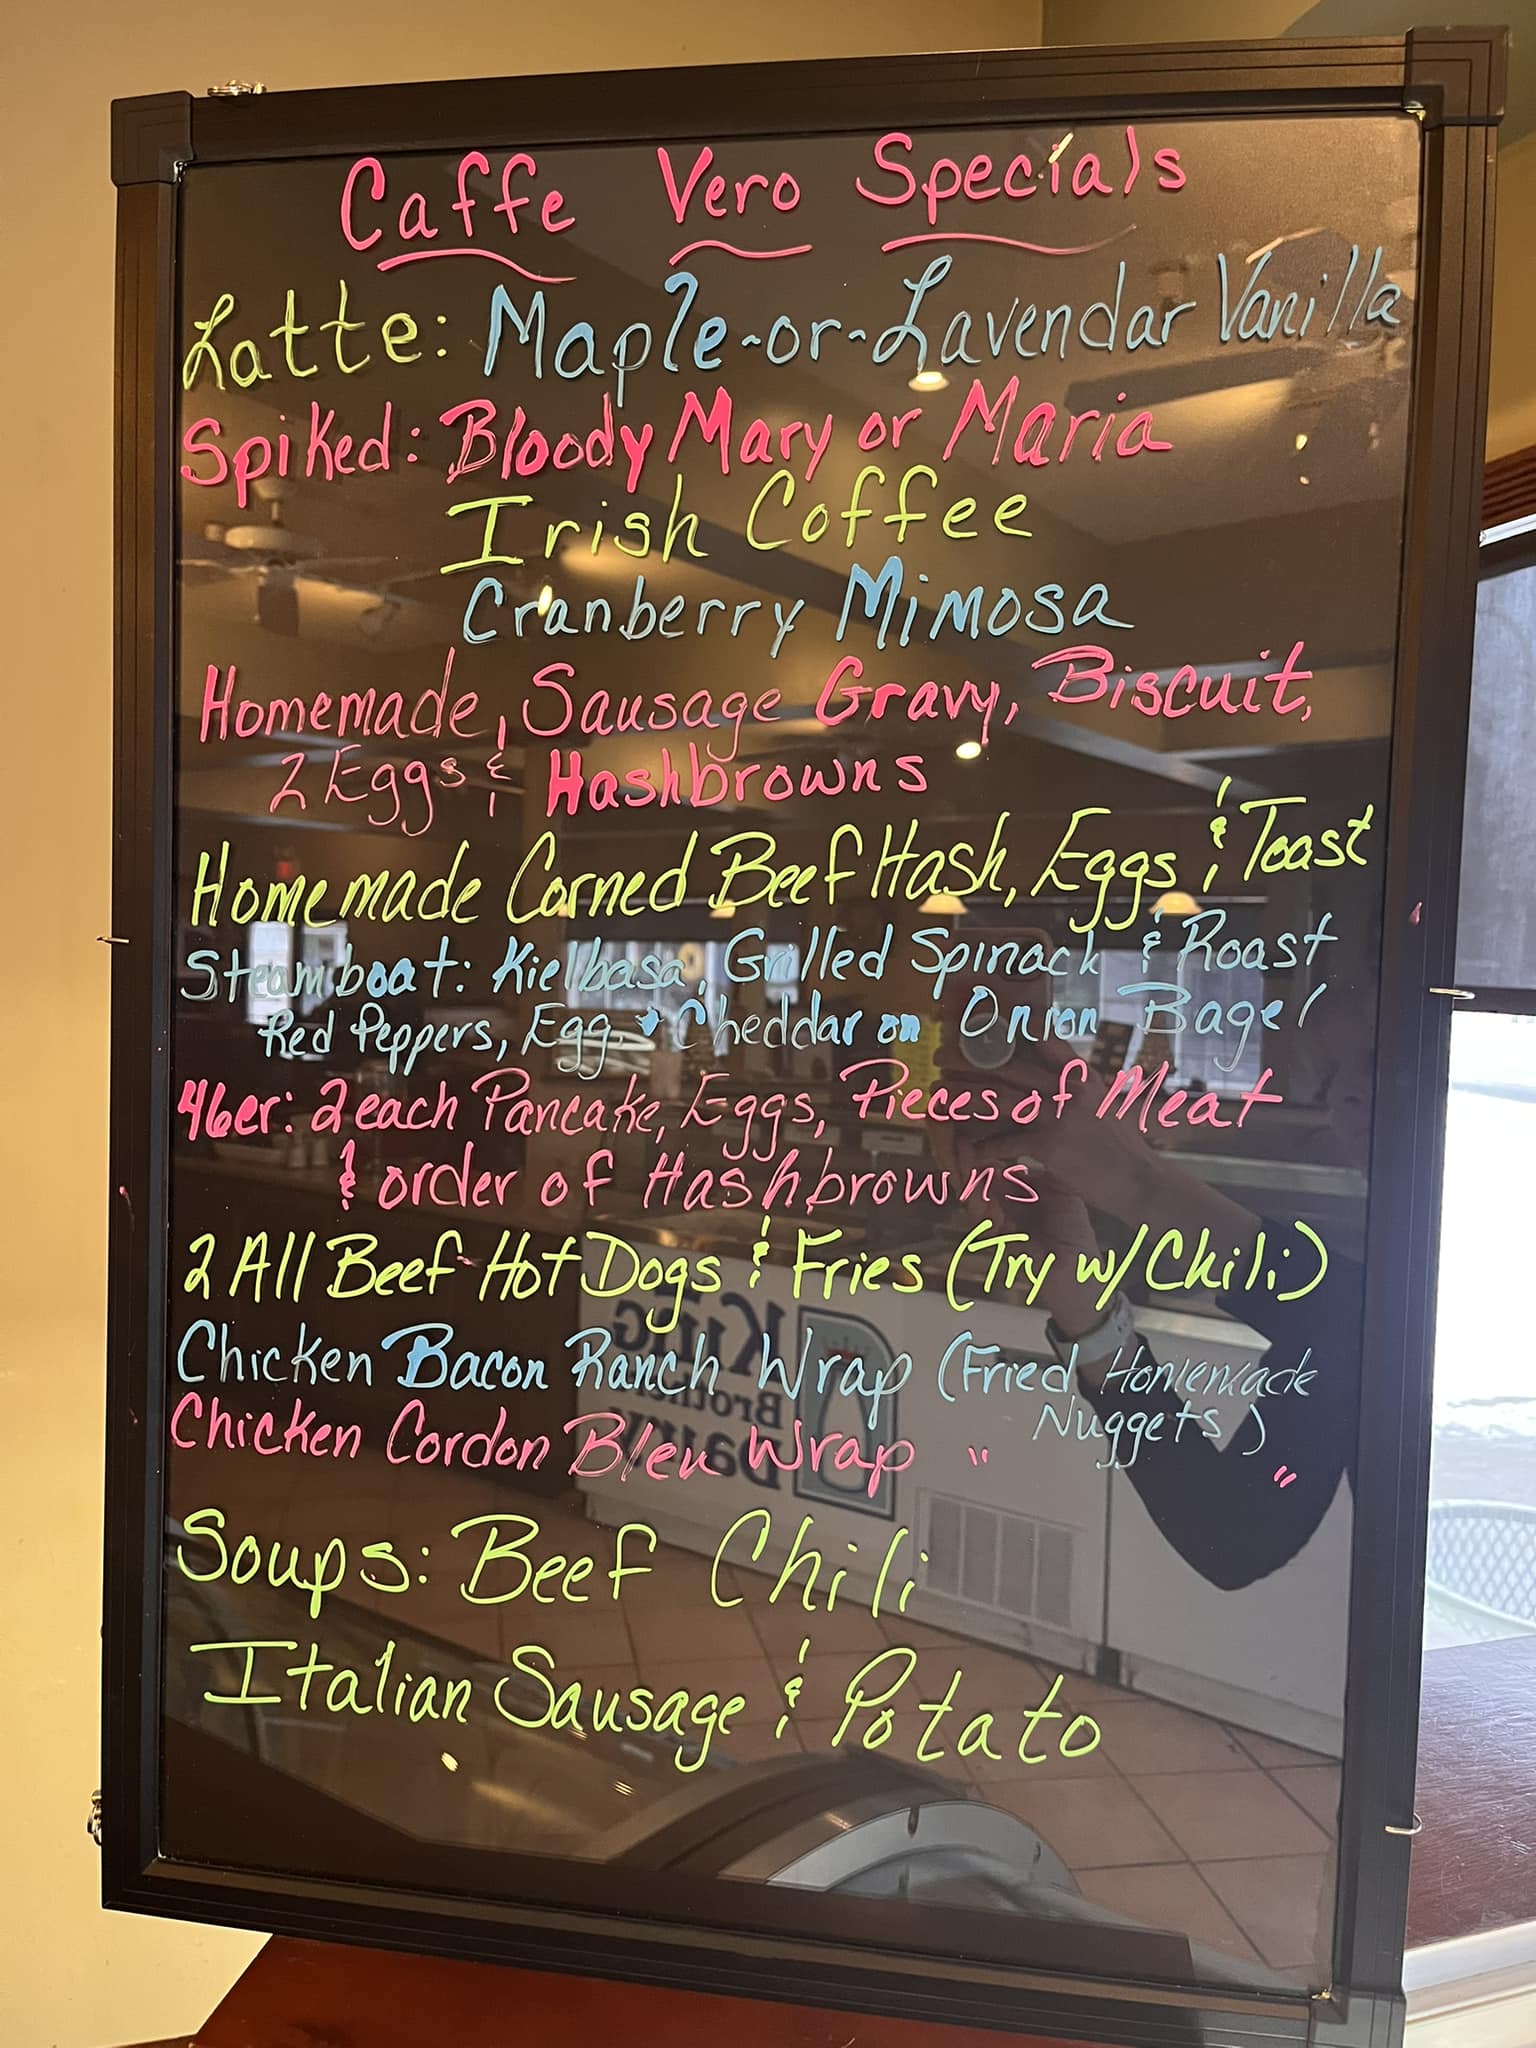 Caffe Vero Specials
Latte: Maple-or-Lavendar Vanilla
Spiked: Bloody Mary or Maria
Irish Coffee
Cranberry Mimosa
Homemade, Sausage Gravy, Biscuit,
2 Eggs & Hashbrowns
Homemade Corned Beef Hash, Eggs & Toast
Steamboat: Kielbasa, Grilled Spinach & Roast
Red Peppers, Egg + Cheddar on Onion Bagel
46er: 2 each Pancake, Eggs, Pieces of Meat
& order of Hashbrowns
2 All Beef Hot Dogs & Fries (Try w/Chili)
Chicken Bacon Ranch Wrap (Fried Homemade
Nuggets)
Chicken Cordon Bleu Wrap " "
Soups: Beef Chili
Italian Sausage & Potato
King
Brothers
Dairy